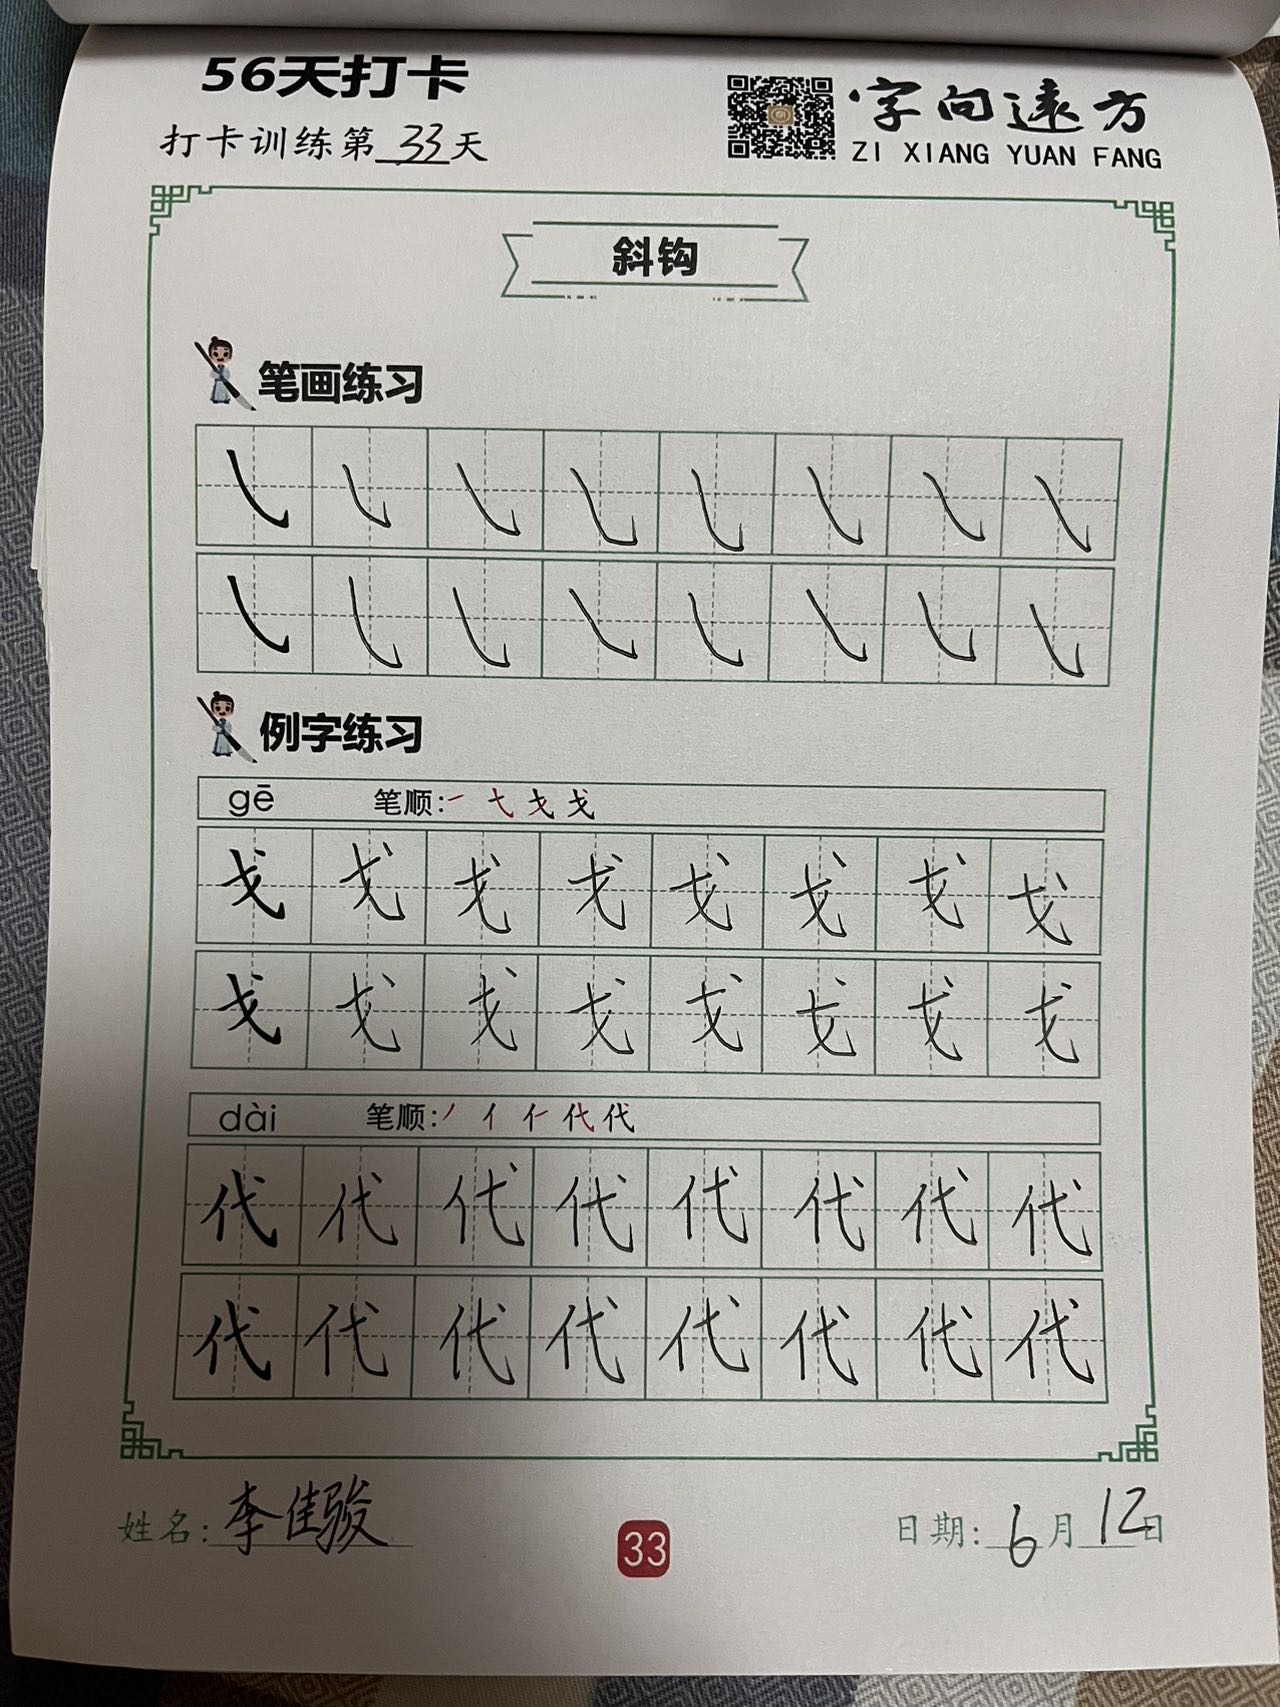 56天打卡
打卡训练第33天
字向远方
ZI XIANG YUAN FANG
斜钩
笔画练习
㇂ ㇂ ㇂ ㇂ ㇂ ㇂ ㇂ ㇂
㇂ ㇂ ㇂ ㇂ ㇂ ㇂ ㇂ ㇂
例字练习
gē 笔顺:一 弋 戈 戈
戈 戈 戈 戈 戈 戈 戈 戈
戈 戈 戈 戈 戈 戈 戈 戈
dài 笔顺:丿 亻 仁 代 代
代 代 代 代 代 代 代 代
代 代 代 代 代 代 代 代
姓名:李佳骏
33
日期:6月12日